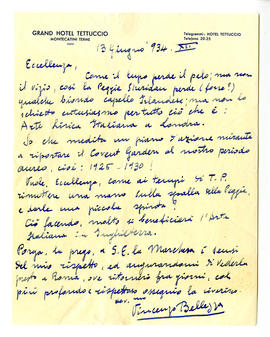 GRAND HOTEL TETTUCCIO
MONTECATINI TERME
Telegrammi: HOTEL TETTUCCIO
Telefono 20-25
3 Giugno 934. XII.
Eccellenza,
Come il lupo perde il pelo; ma non
il vizio, così la Peggie Sheridan perde (forse!)
qualche biondo capello Irlandese; ma non lo
schietto entusiasmo per tutto ciò che è:
Arte Lirica Italiana a Londra.
So che medita un piano d'azione mirante
a riportare il Covent Garden al nostro periodo
aureo, cioè: 1925-1930!
Vuole, Eccellenza, come ai tempi di T.P.
rimettere una mano sulla spalla della Peggie,
e darle una piccola spinta?
Ciò facendo, molto si beneficierà l'Arte
Italiana in Inghilterra.
Porga, la prego, a S.E. la Marchesa i sensi
del mio rispetto, ed augurandomi di vederla
presto a Roma, ove ritornerò fra giorni, col
più profondo e rispettoso ossequio la riverisco.
Vincenzo Bellezza